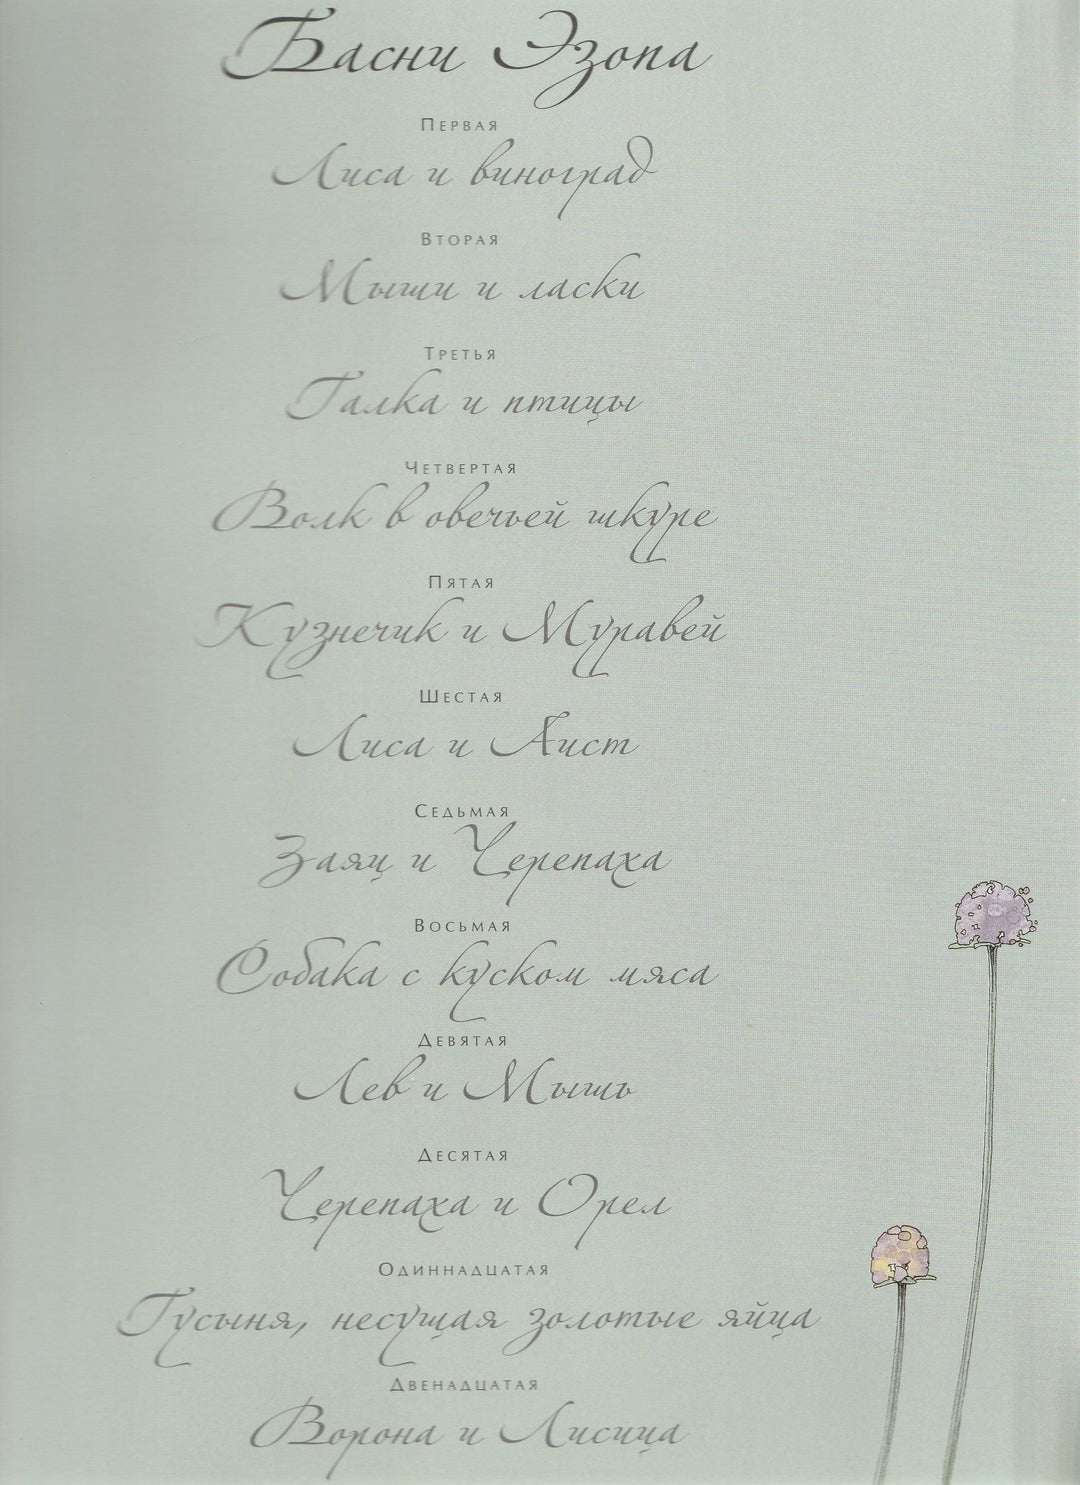 Басни Эзопа
Первая
Лиса и виноград
Вторая
Мыши и ласки
Третья
Галка и птицы
Четвертая
Волк в овечьей шкуре
Пятая
Кузнечик и Муравей
Шестая
Лиса и Аист
Седьмая
Заяц и Черепаха
Восьмая
Собака с куском мяса
Девятая
Лев и Мышь
Десятая
Черепаха и Орел
Одиннадцатая
Гусыня, несущая золотые яйца
Двенадцатая
Ворона и Лисица